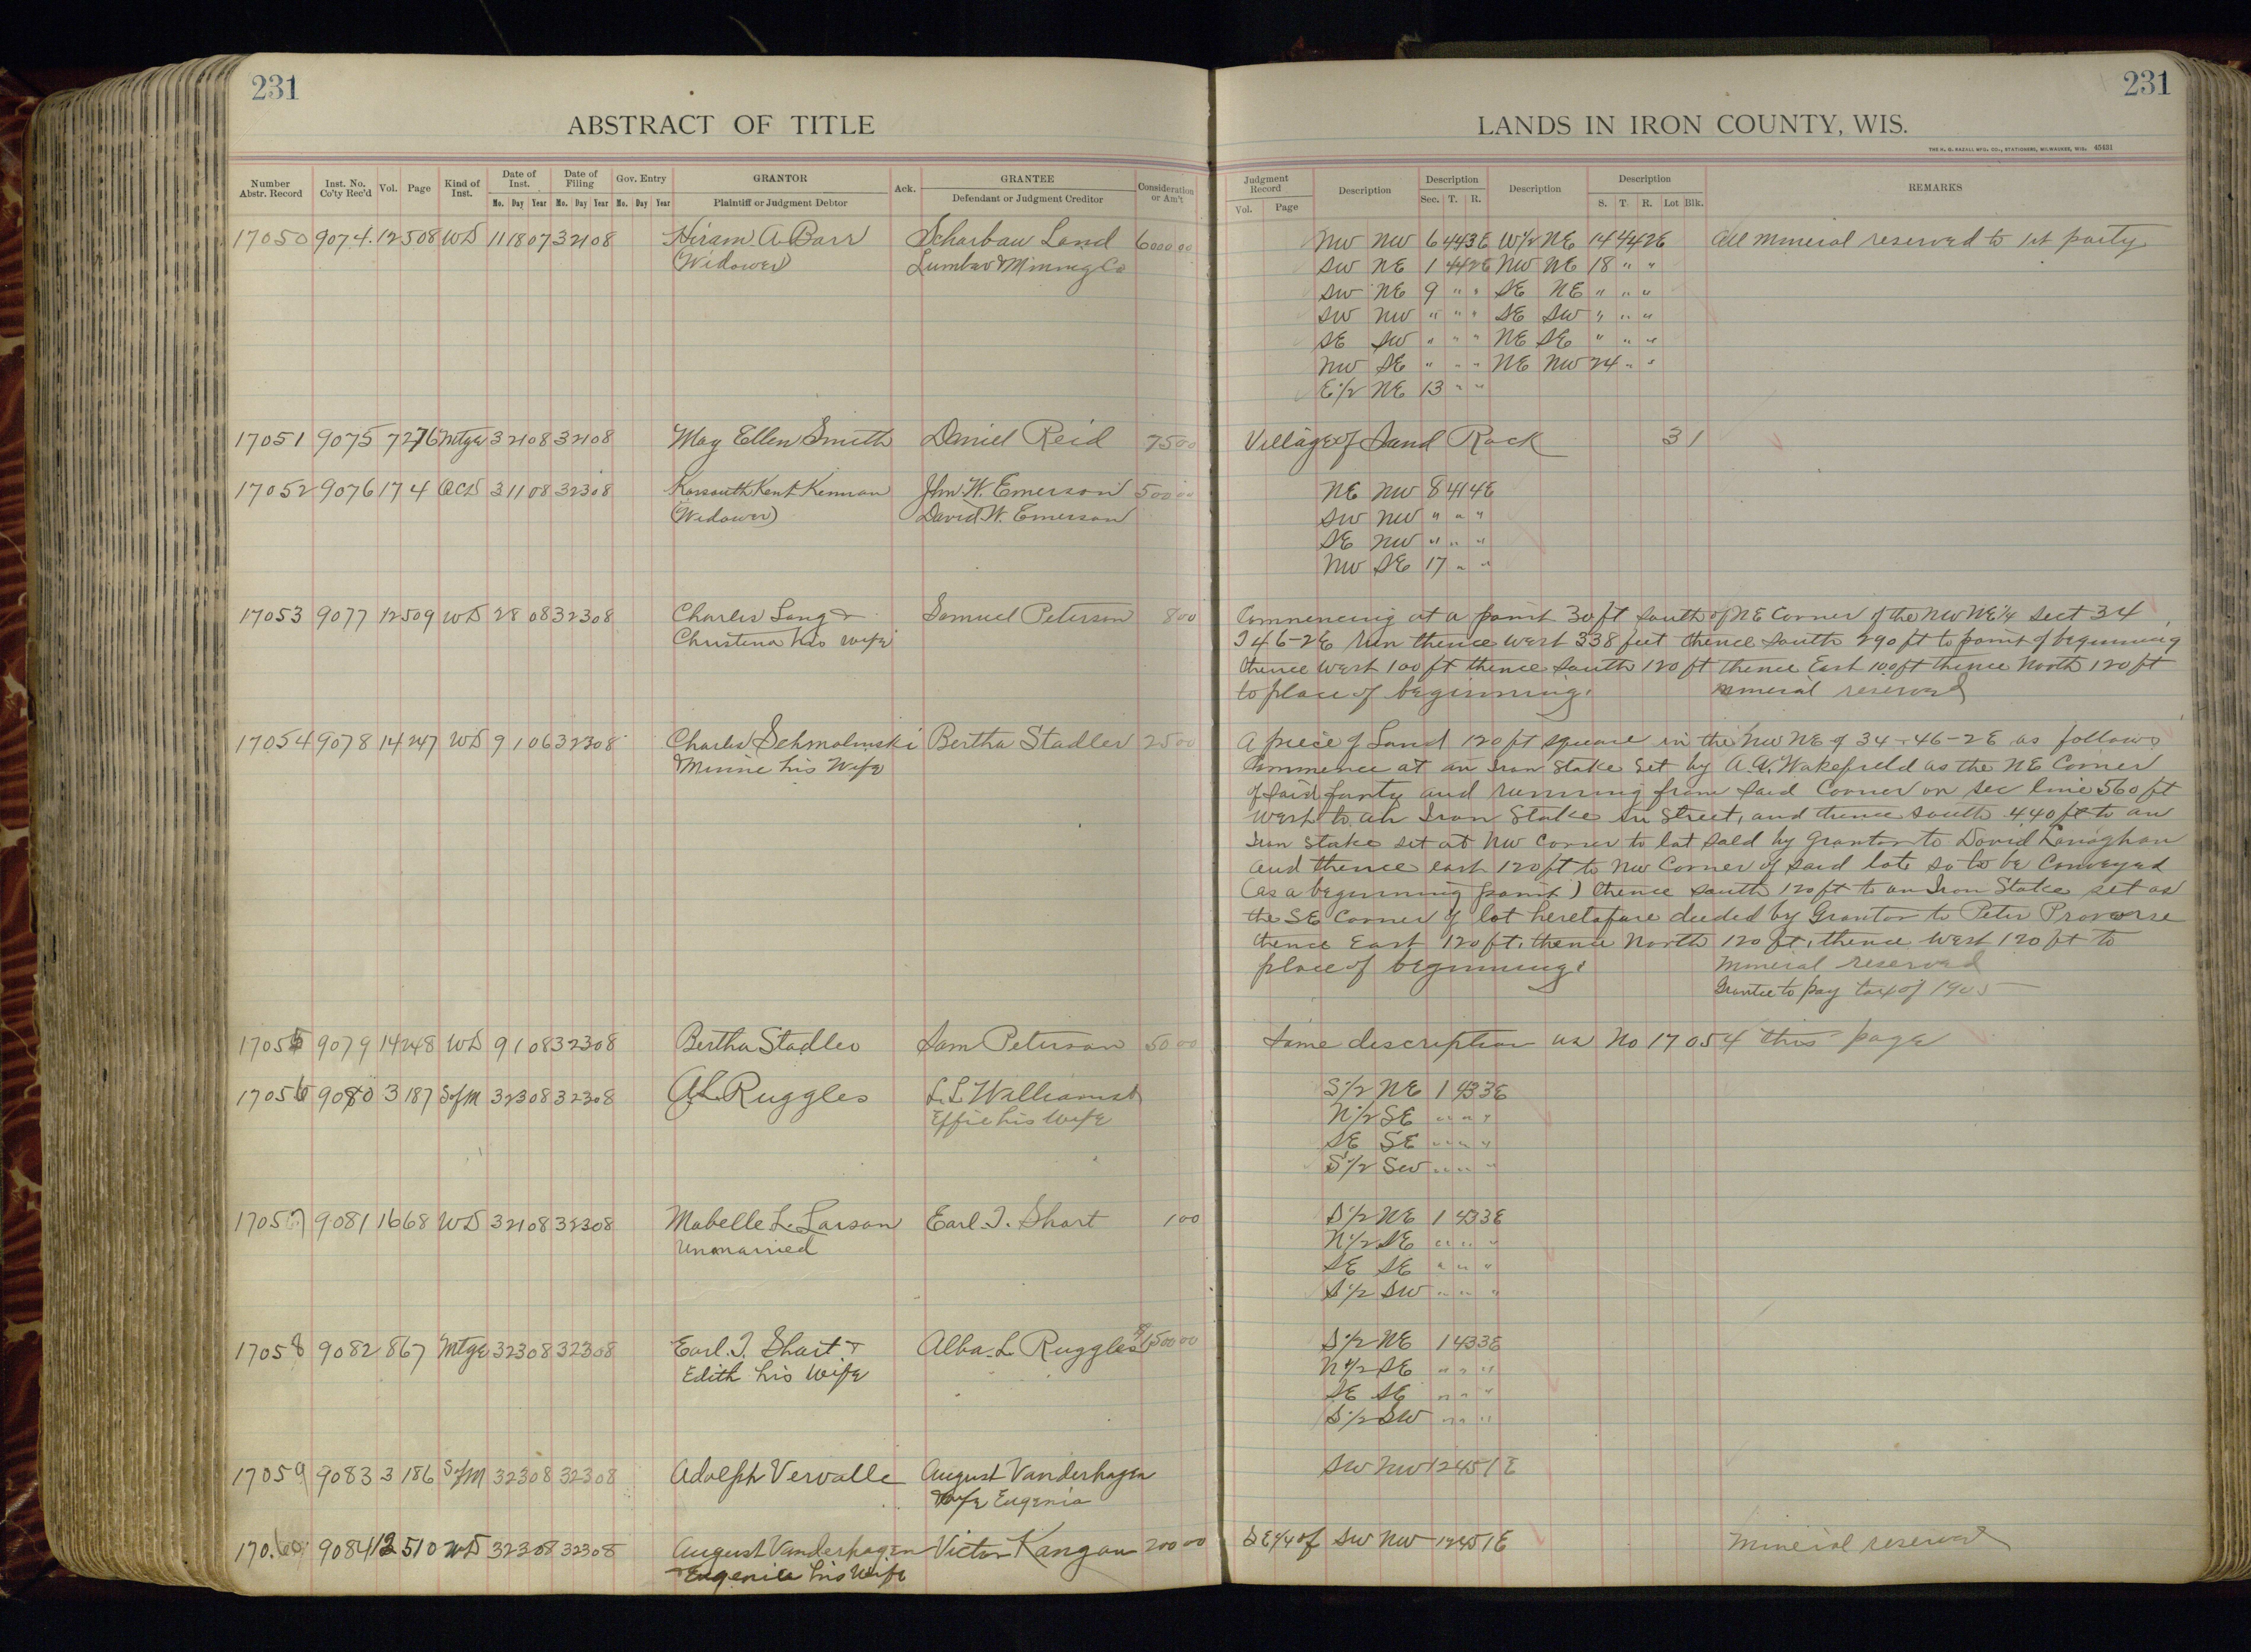 231
ABSTRACT OF TITLE
Number Abstr. Record | Inst. No. Co'ty Rec'd | Vol. | Page | Kind of Inst. | Date of Inst. Mo. Day Year | Date of Filing Mo. Day Year | Gov. Entry Mo. Day Year | GRANTOR Plaintiff or Judgment Debtor | Ack. | GRANTEE Defendant or Judgment Creditor | Consideration or Am't
17050 9074 12 508 WD 11 18 07 3 21 08 Hiram A Barr Scharbau Land 6000 00
(Widower) Lumber & Mining Co
17051 9075 7 276 Mtge 3 21 08 3 21 08 May Ellen Smith Daniel Reid 75 00
17052 9076 17 4 QCD 3 11 08 3 23 08 Kossouth Kent Kennan John W. Emerson 500 00
(Widower) David W. Emerson
17053 9077 12 509 WD 2 8 08 3 23 08 Charles Long & Samuel Peterson 8 00
Christena his wife
17054 9078 14 247 WD 9 1 06 3 23 08 Charles Schmolinski Bertha Stadler 25 00
& Minnie his Wife
17055 9079 14 248 WD 9 1 08 3 23 08 Bertha Stadler Sam Peterson 50 00
17056 9080 3 187 S of M 3 23 08 3 23 08 A.L. Ruggles L.L. Williams &
Effie his Wife
17057 9081 16 68 WD 3 21 08 3 23 08 Mabelle L. Larson Earl. T. Short 1 00
Unmarried
17058 9082 8 67 Mtge 3 23 08 3 23 08 Earl. T. Short & Alba. L. Ruggles 1500 00
Edith his Wife
17059 9083 3 186 S of M 3 23 08 3 23 08 Adolph Vervalle August Vanderhagen
& wife Eugenia
17060 9084 12 510 WD 3 23 08 3 23 08 August Vanderhagen Victor Kangau 200 00
Eugenia his Wife
231
LANDS IN IRON COUNTY, WIS.
THE H. G. RAZALL MFG. CO., STATIONERS, MILWAUKEE, WIS. 45431
Judgment Record Vol. Page | Description | Description Sec. T. R. | Description | Description S. T. R. Lot Blk. | REMARKS
NW NW 6 44 3E W 1/2 NE 14 44 2E All mineral reserved to 1st party
SW NE 1 44 2E NW NE 18 " "
SW NE 9 " " SE NE " " "
SW NW " " " SE SW " " "
SE SW " " " NE SE " " "
NW SE " " " NE NW 24 " "
E 1/2 NE 13 " "
Village of Sand Rock 3 1
NE NW 8 41 4E
SW NW " " "
SE NW " " "
NW SE 17 " "
Commencing at a point 30 ft south of NE Corner of the NW NE 1/4 sect 34
T 46-2E Run thence west 338 feet thence south 290 ft to point of beginning
thence West 100 ft thence South 120 ft thence East 100 ft thence North 120 ft
to place of beginning. mineral reserved
A piece of Land 120 ft square in the NW NE of 34-46-2E as follows
Commence at an Iron Stake set by A.V. Wakefield as the NE Corner
of said forty and running from said Corner on sec line 560 ft
West to an Iron Stake in Street, and thence south 440 ft to an
Iron stake set at NW Corner to lot sold by Grantor to David Lanaghan
and thence east 120 ft to NW Corner of said lot so to be Conveyed
(as a beginning point) thence South 120 ft to an Iron Stake set as
the SE Corner of lot heretofore deeded by Grantor to Peter
thence East 120 ft, thence North 120 ft, thence West 120 ft to
place of beginning. Mineral reserved
Grantee to pay tax of 1905
Same description as No 17054 this page
S 1/2 NE 1 43 3E
N 1/2 SE " " "
SE SE " " "
S 1/2 SW " " "
S 1/2 NE 1 43 3E
N 1/2 SE " " "
SE SE " " "
S 1/2 SW " " "
S 1/2 NE 1 43 3E
N 1/2 SE " " "
SE SE " " "
S 1/2 SW " " "
SW NW 12 45 1E
SE 1/4 of SW NW 12 45 1E Mineral reserved